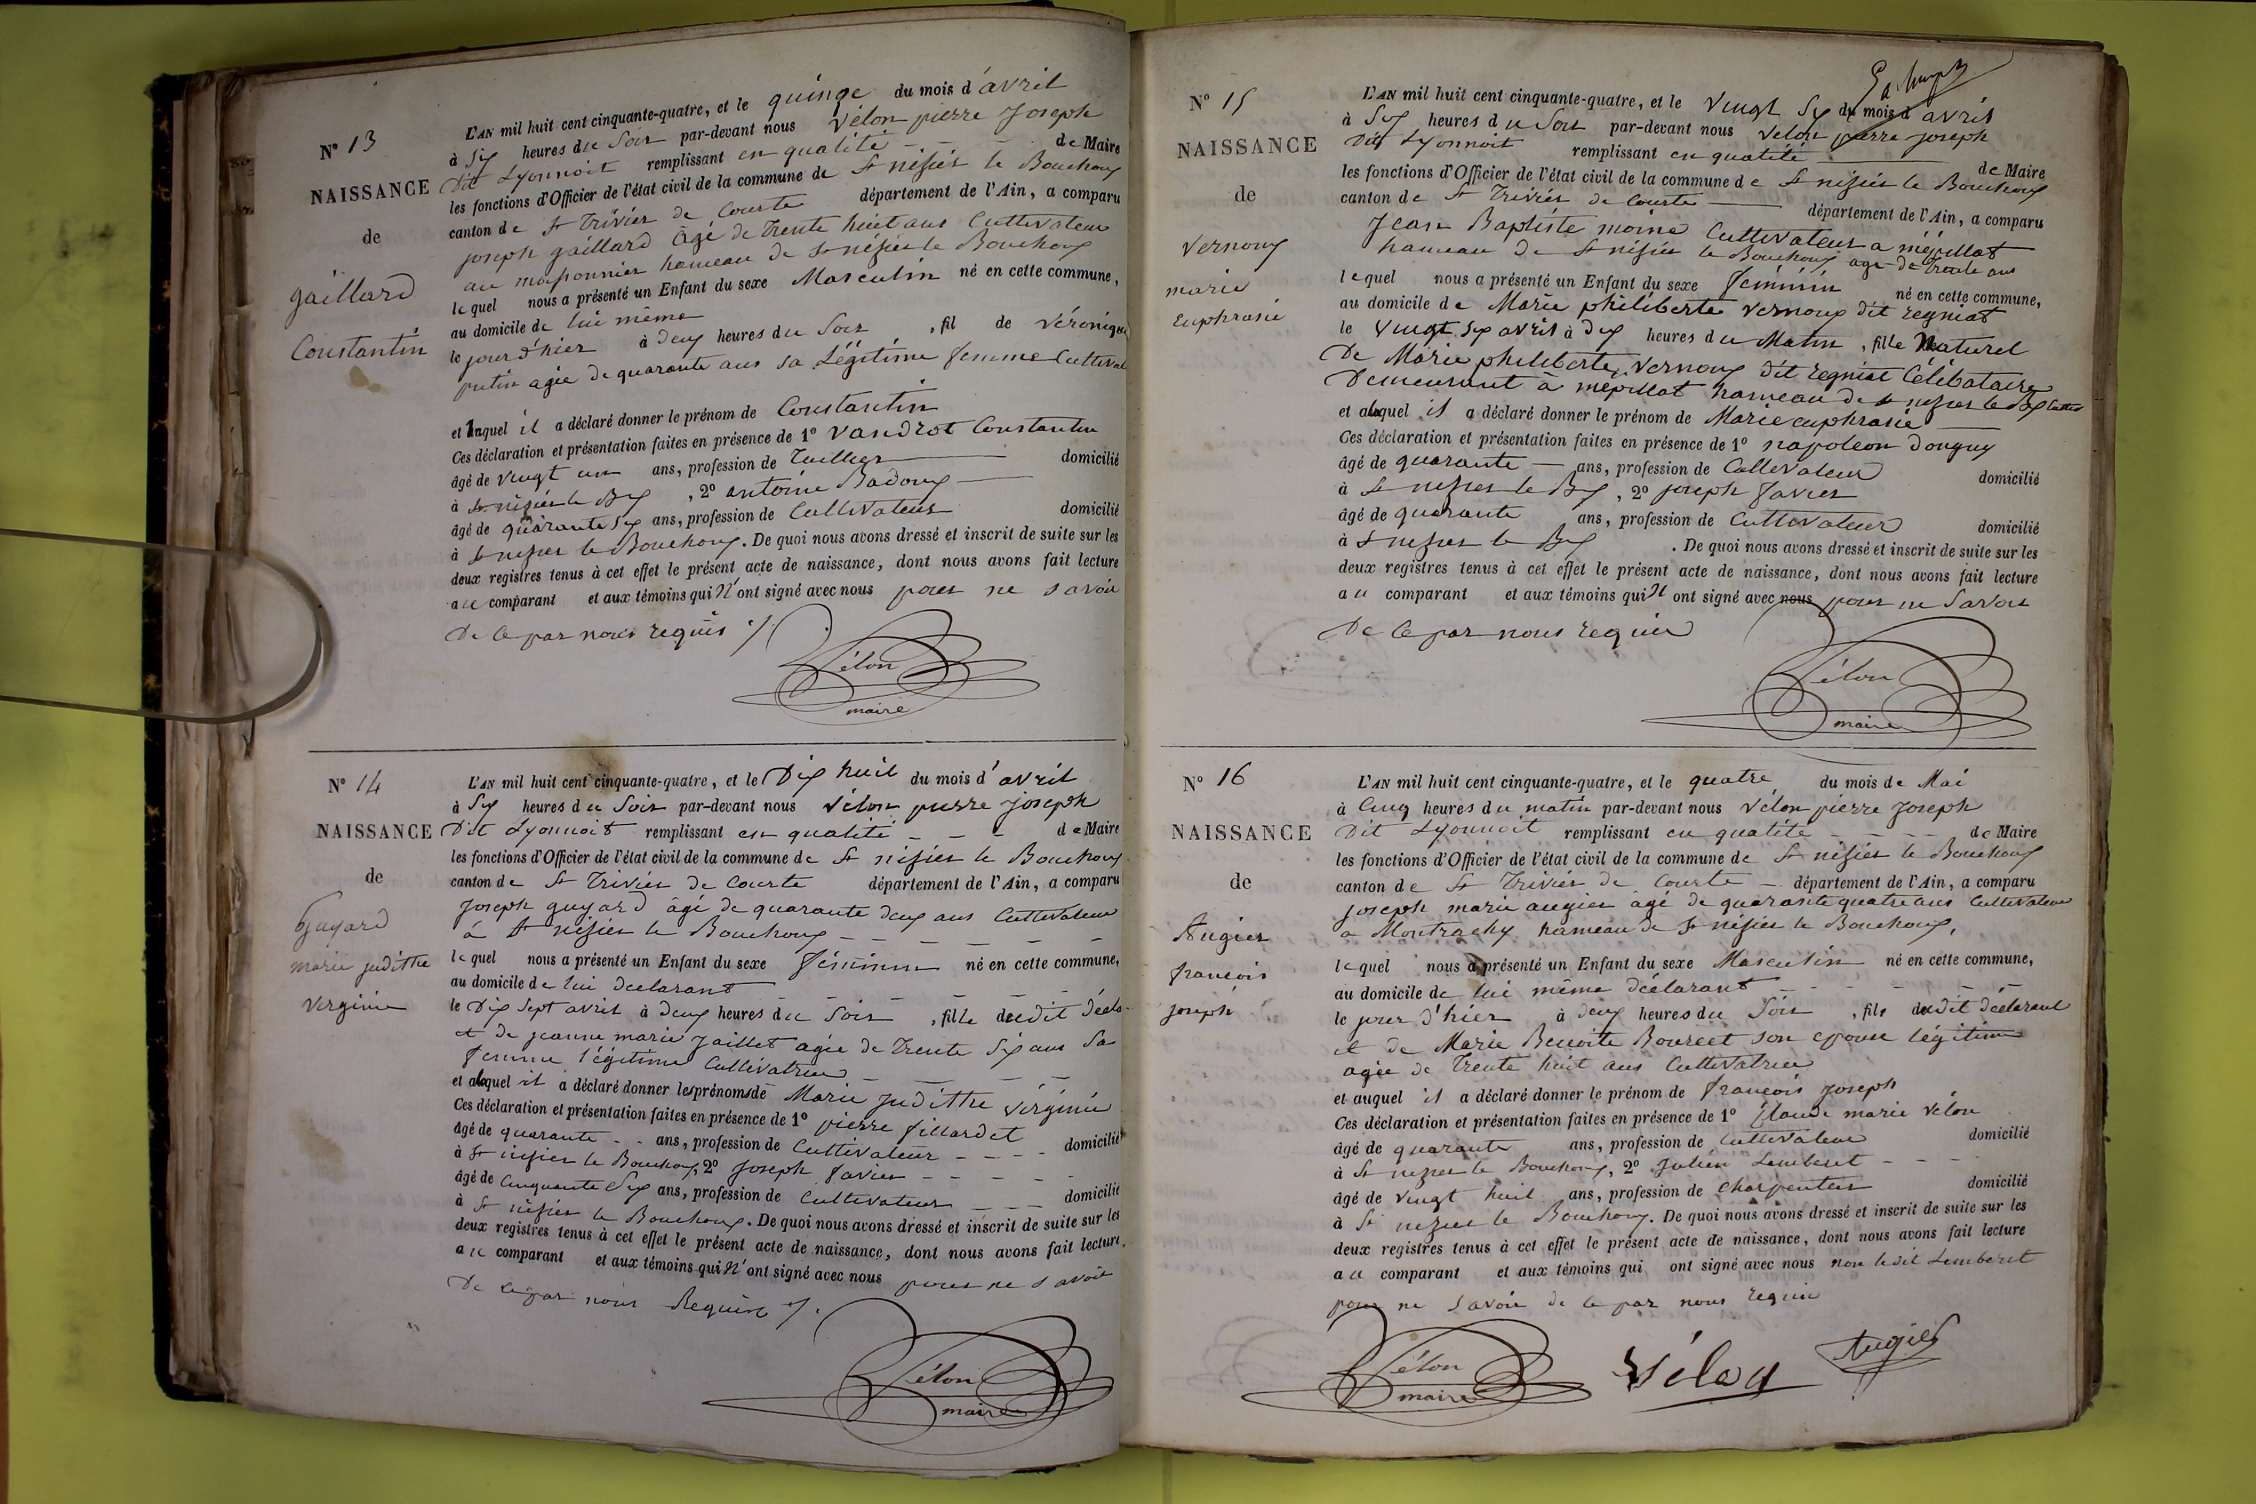 N° 13
NAISSANCE
de
gaillard
Constantin
L'AN mil huit cent cinquante-quatre, et le quinze du mois d'avril
à Six heures du Soir par-devant nous Vélon pierre Joseph
Dit Lyonnoit remplissant en qualité - - - de Maire
les fonctions d'Officier de l'état civil de la commune de St nisiér le Bouchoux
canton de St Triviér de Courte département de l'Ain, a comparu
joseph gaillard âgé de trente huit ans Cultivateur
au massonnier hameau de St nisier le Bouchoux
lequel nous a présenté un Enfant du sexe Masculin né en cette commune,
au domicile de lui même
le jour d'hier à deux heures du Soir , fil de Véronique
putin agée de quarante ans sa Légitime femme Cultivat
et auquel il a déclaré donner le prénom de Constantin
Ces déclaration et présentation faites en présence de 1° Vandrot Constantin
âgé de vingt un ans, profession de Tuillier domicilié
à St nisiér le Bx , 2° antoine Badoux
âgé de quarante six ans, profession de Cultivateur domicilié
à St nisier le Bouchoux. De quoi nous avons dressé et inscrit de suite sur les
deux registres tenus à cet effet le présent acte de naissance, dont nous avons fait lecture
au comparant et aux témoins qui n'ont signé avec nous pour ne savoir
De ce par nous requis ./.
Vélon
maire
N° 14
NAISSANCE
de
Guyard
marie juditthe
virginie
L'AN mil huit cent cinquante-quatre, et le Dix huit du mois d'avril
à Six heures du Soir par-devant nous Vélon pierre joseph
Dit Lyonnoit remplissant en qualité - - - de Maire
les fonctions d'Officier de l'état civil de la commune de St nisiér le Bouchoux
canton de St Triviér de Courte département de l'Ain, a comparu
Joseph guyard âgé de quarante deux ans Cultivateur
à St nisiér le Bouchoux
lequel nous a présenté un Enfant du sexe féminin né en cette commune,
au domicile de lui déclarant
le Dix Sept avril à deux heures du Soir , fille dudit décla-
et de jeanne marie Jaillet agée de Trente Six ans Sa
femme légitime Cultivatrice
et auquel il a déclaré donner les prénoms de Marie Juditthe virginie
Ces déclaration et présentation faites en présence de 1° pierre fillardet
âgé de quarante - - ans, profession de Cultivateur - - - domicilié
à St nisier le Bouchoux, 2° Joseph favier - - -
âgé de Cinquante Six ans, profession de Cultivateur domicilié
à St nisiér le Bouchoux. De quoi nous avons dressé et inscrit de suite sur les
deux registres tenus à cet effet le présent acte de naissance, dont nous avons fait lecture
au comparant et aux témoins qui n'ont signé avec nous pour ne savoir
De ce par nous Requis ./.
Vélon
maire
N° 15
NAISSANCE
de
Vernoux
marie
Euphrasie
L'AN mil huit cent cinquante-quatre, et le Vingt Six du mois d avril
à Six heures du Soir par-devant nous Velon pierre joseph
Dit Lyonnoit remplissant en qualité de Maire
les fonctions d'Officier de l'état civil de la commune de St nisiér le Bouchoux
canton de St Triviér de Courte département de l'Ain, a comparu
Jean Baptiste moine Cultivateur a mépillat
hameau de St nisiér le Bouchoux agé de trente ans
lequel nous a présenté un Enfant du sexe féminin né en cette commune,
au domicile de Marie philiberte Vernoux dit regniat
le Vingt Six avril à dix heures du Matin , fille Naturel
De Marie philiberte Vernoux dit regniat Célibataire
Demeurant à mépillat hameau de St nisier le Bx
et auquel il a déclaré donner le prénom de Marie euphrasie
Ces déclaration et présentation faites en présence de 1° napoléon Donguy
âgé de quarante ans, profession de Cultivateur domicilié
à St nisier le Bx , 2° joseph favier
âgé de quarante ans, profession de Cultivateur domicilié
à St nisier le Bx . De quoi nous avons dressé et inscrit de suite sur les
deux registres tenus à cet effet le présent acte de naissance, dont nous avons fait lecture
au comparant et aux témoins qui N ont signé avec nous pour ne Savoir
De ce par nous requis
Vélon
maire
N° 16
NAISSANCE
de
Augier
françois
joseph
L'AN mil huit cent cinquante-quatre, et le quatre du mois de Mai
à Cinq heures du matin par-devant nous Vélon pierre Joseph
Dit Lyonnoit remplissant en qualité - - - - de Maire
les fonctions d'Officier de l'état civil de la commune de St nisiér le Bouchoux
canton de St Triviér de Courte - département de l'Ain, a comparu
joseph marie augier agé de quarante quatre ans Cultivateur
a Montrachy hameau de St nisiér le Bouchoux,
lequel nous a présenté un Enfant du sexe Masculin né en cette commune,
au domicile de lui même déclarant
le jour d'hier à deux heures du Soir , fils dudit déclarant
et de Marie Benoite Bourcet son epouse légitime
agée de trente huit ans Cultivatrice
et auquel il a déclaré donner le prénom de françois Joseph
Ces déclaration et présentation faites en présence de 1° Claude marie Vélon
âgé de quarante ans, profession de Cultivateur domicilié
à St nisier le Bouchoux, 2° Julien Lemberet - - -
âgé de vingt huit ans, profession de Charpentier domicilié
à St nisier le Bouchoux. De quoi nous avons dressé et inscrit de suite sur les
deux registres tenus à cet effet le présent acte de naissance, dont nous avons fait lecture
au comparant et aux témoins qui ont signé avec nous non le dit Lemberet
pour ne Savoir de ce par nous requis
Vélon
maire
Vélon
Augier